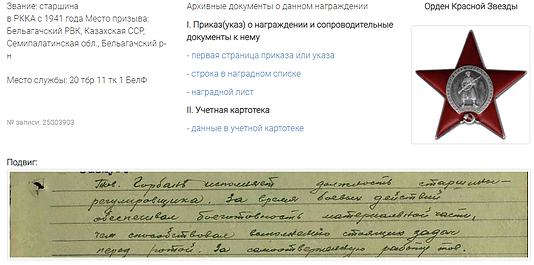 Звание: старшина
в РККА с 1941 года Место призыва:
Бельагачский РВК, Казахская ССР,
Семипалатинская обл., Бельагачский р-
н
Место службы: 20 тбр 11 тк 1 БелФ
№ записи: 25003903
Архивные документы о данном награждении
I. Приказ(указ) о награждении и сопроводительные
документы к нему
- первая страница приказа или указа
- строка в наградном списке
- наградной лист
II. Учетная картотека
- данные в учетной картотеке
Орден Красной Звезды
Подвиг:
Тов. Горбань исполняет должность старшины-
регулировщика. За время боевых действий
обеспечивал боеготовность материальной части,
чем способствовал выполнению стоящих задач
перед ротой. За самоотверженную работу тов.